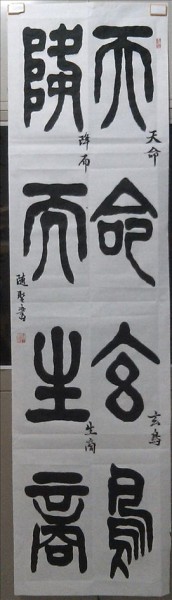 天命玄鳥
天命
玄鳥
降而生商
降而
生商